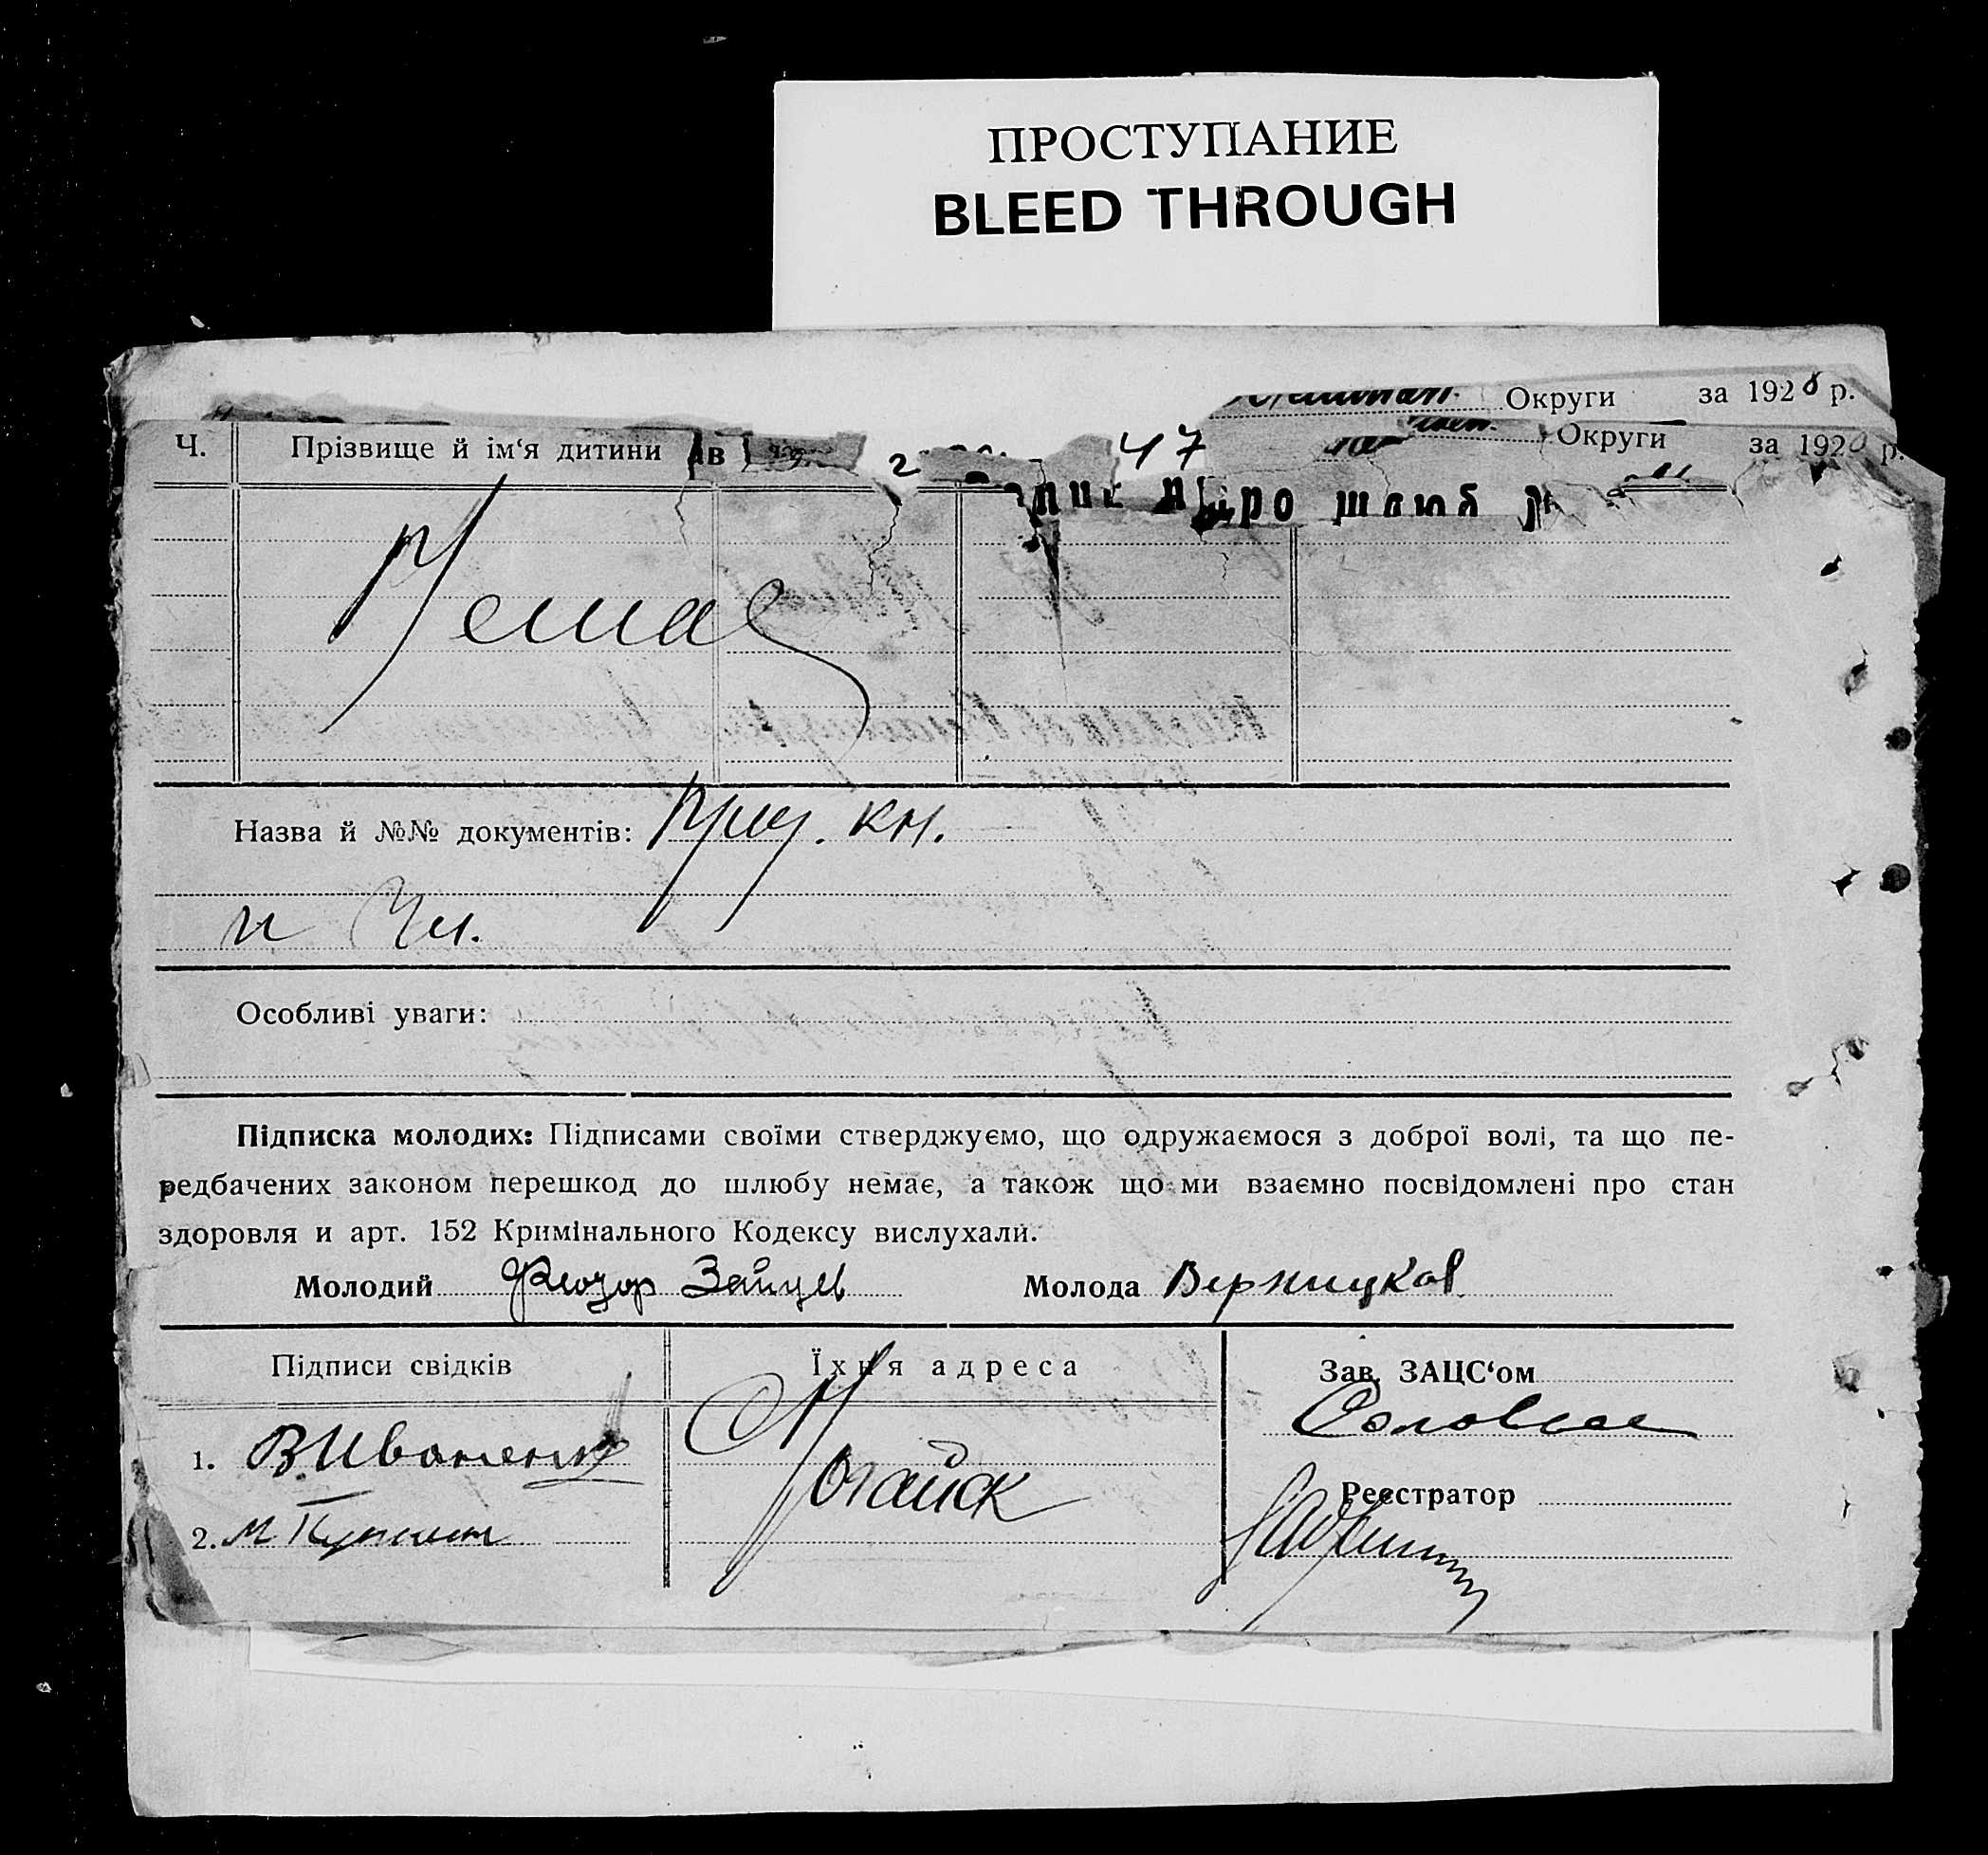 ПРОСТУПАНИЕ
BLEED THROUGH
Округи за 1928 р.
Округи за 192 р.
Ч. Прізвище й ім‘я дитини
47
про шлюб №
Немає
Назва й №№ документів: Труд. кн.
и
Особливі уваги:
Підписка молодих: Підписами своїми стверджуємо, що одружаємося з доброї волі, та що пе-
редбачених законом перешкод до шлюбу немає, а також що ми взаємно посвідомлені про стан
здоровля и арт. 152 Кримінального Кодексу вислухали.
Молодий Феодор Зайцев Молода
Підписи свідків Їхня адреса Зав. ЗАЦС‘ом
1. В. Иваненко
Ногайск
Реєстратор
2. М